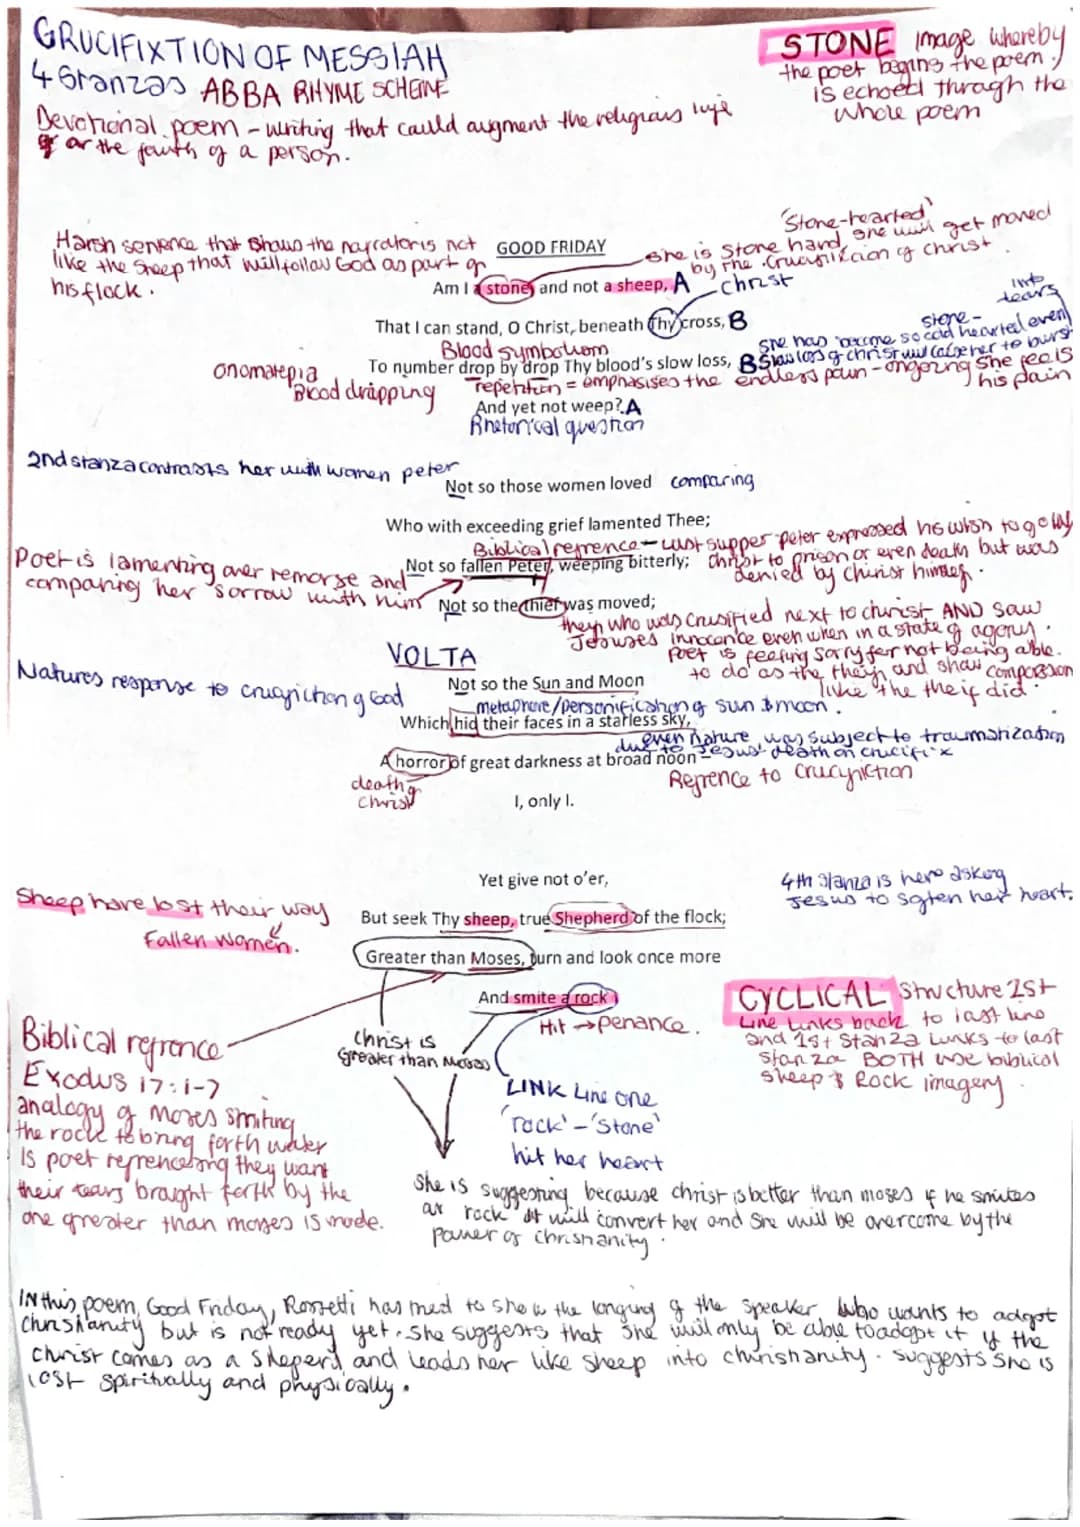 CRUCIFIXTION OF MESSIAH
4 Stanzas ABBA RHYME SCHEME
Devotional poem - writing that could augment the religious life
or the faith of a person.
STONE image whereby
the poet begins the poem,
is echoed through the
whole poem
Harsh sentence that shows the narrator is not
like the sheep that will follow God as part of
his flock.
GOOD FRIDAY
'Stone-hearted'
she is stone hard, she will get moved
by the crucifixion of christ.
Am I a stone, and not a sheep, A
christ
That I can stand, O Christ, beneath Thy cross, B
Blood symbolism
To number drop by drop Thy blood's slow loss, B
she has become so cold hearted even
stone-
into
tears
slow loss of christ will cause her to burst
onomatepia
Blood dripping
repetition = emphasises the endless pain - ongoing she feels
his pain
And yet not weep? A
Rhetorical question
2nd stanza contrasts her with women peter
Not so those women loved
comparing
Who with exceeding grief lamented Thee;
Biblical refrence - last supper peter expressed his wish to go
christ to prison or even death but was
denied by christ himself.
Not so fallen Peter, weeping bitterly;
Poet is lamenting over remorse and
comparing her sorrow with him
Not so the thief was moved;
who was crusified next to christ AND saw
Jesuses innocence even when in a state of agony.
Poet is feeling sorry for not being able
to do as the theif, and show compassion
like the theif did.
VOLTA
Natures response to crucifiction of God
Not so the Sun and Moon
metaphore/personification of sun & moon.
Which hid their faces in a starless sky,
even nature was subject to traumatization
due to Jesus' death on crucifix
A horror of great darkness at broad noon –
Refrence to crucifiction
death of
christ
I, only I.
Yet give not o'er,
4th stanza is hero asking
Jesus to soften her heart.
Sheep have lost their way
Fallen women.
But seek Thy sheep, true Shepherd of the flock;
Greater than Moses, turn and look once more
And smite a rock
Hit → penance.
CYCLICAL structure 1st
line links back to last line
and 1st stanza links to last
stanza BOTH use biblical
sheep & Rock imagery.
Christ is
greater than Moses
Biblical refrence
Exodus 17:1-7
analogy of Moses smiting
the rock to bring forth water
is poet refrenceing they want
their tears brought forth by the
one greater than moses is made.
LINK Line one
'rock' - 'Stone'
hit her heart
She is suggesting because christ is better than moses if he smites
a rock it will convert her and she will be overcome by the
power of christianity.
IN this poem, Good Friday, Rossetti has tried to show the longing of the speaker who wants to adopt
christianity but is not ready yet. She suggests that she will only be able to adopt it if the
christ comes as a sheperd and leads her like sheep into christianity. suggests she is
lost spiritually and physically.